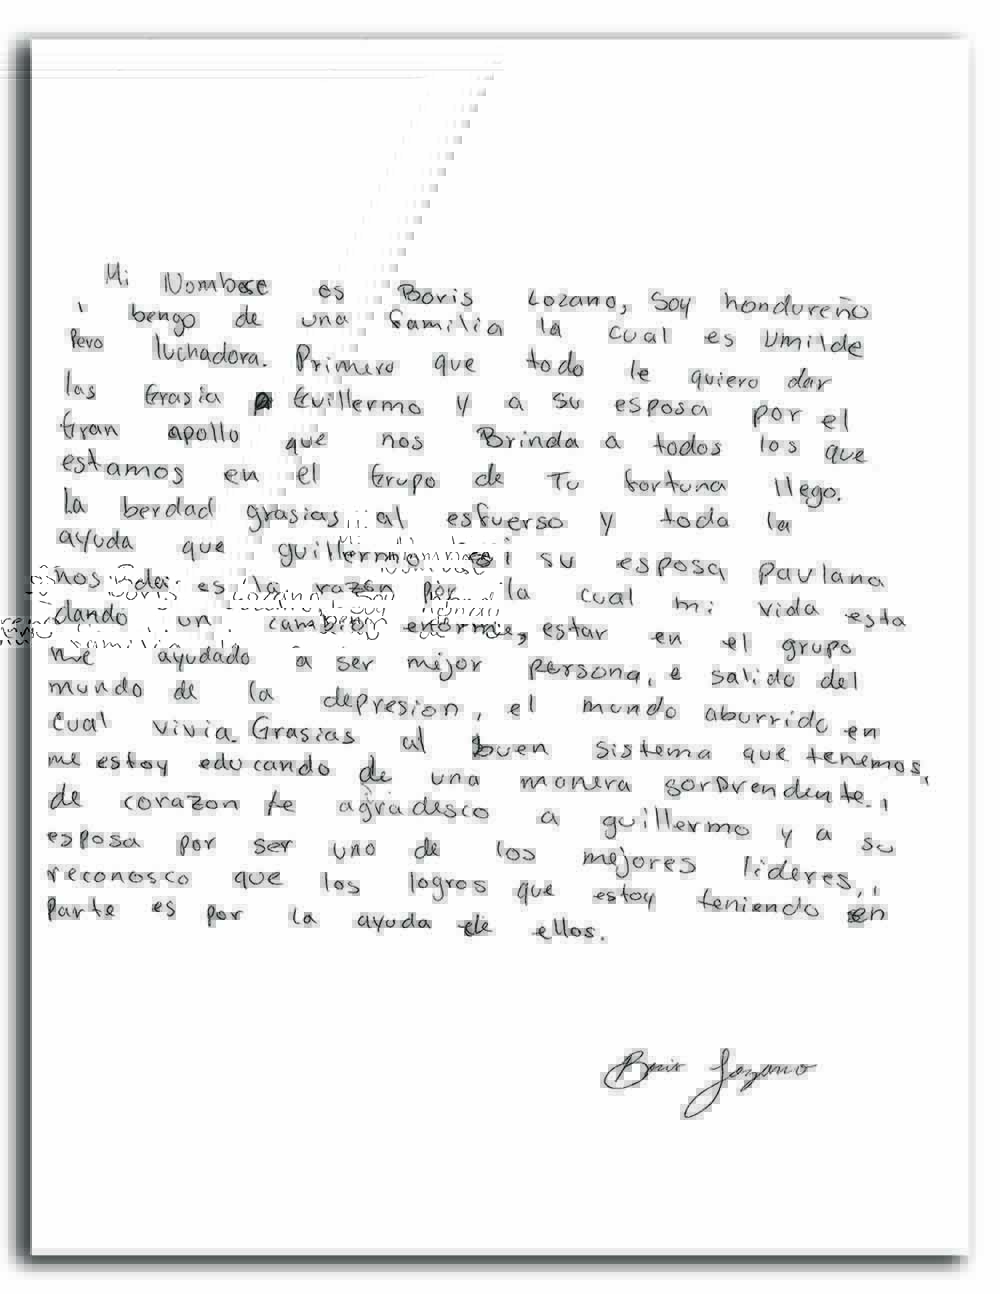 Mi Nombre es Boris Lozano, Soy hondureño
i bengo de una familia la cual es Umilde
Pero luchadora. Primero que todo le quiero dar
las Grasia a Guillermo y a su esposa por el
Gran apollo que nos Brinda a todos los que
estamos en el Grupo de Tu fortuna llego.
La berdad grasias al esfuerso y toda la
ayuda que guillermo i su esposa paulana
nos da es la razon por la cual mi vida esta
dando un cambio enorme, estar en el grupo
me ayudado a ser mijor persona, e salido del
mundo de la depresion, el mundo aburrido en
cual vivia. Grasias al buen sistema que tenemos,
me estoy educando de una manera sorprendente. i
de corazon te agradesco a guillermo y a su
esposa por ser uno de los mejores lideres, i
reconosco que los logros que estoy teniendo en
Parte es por la ayuda de ellos.
Boris Lozano